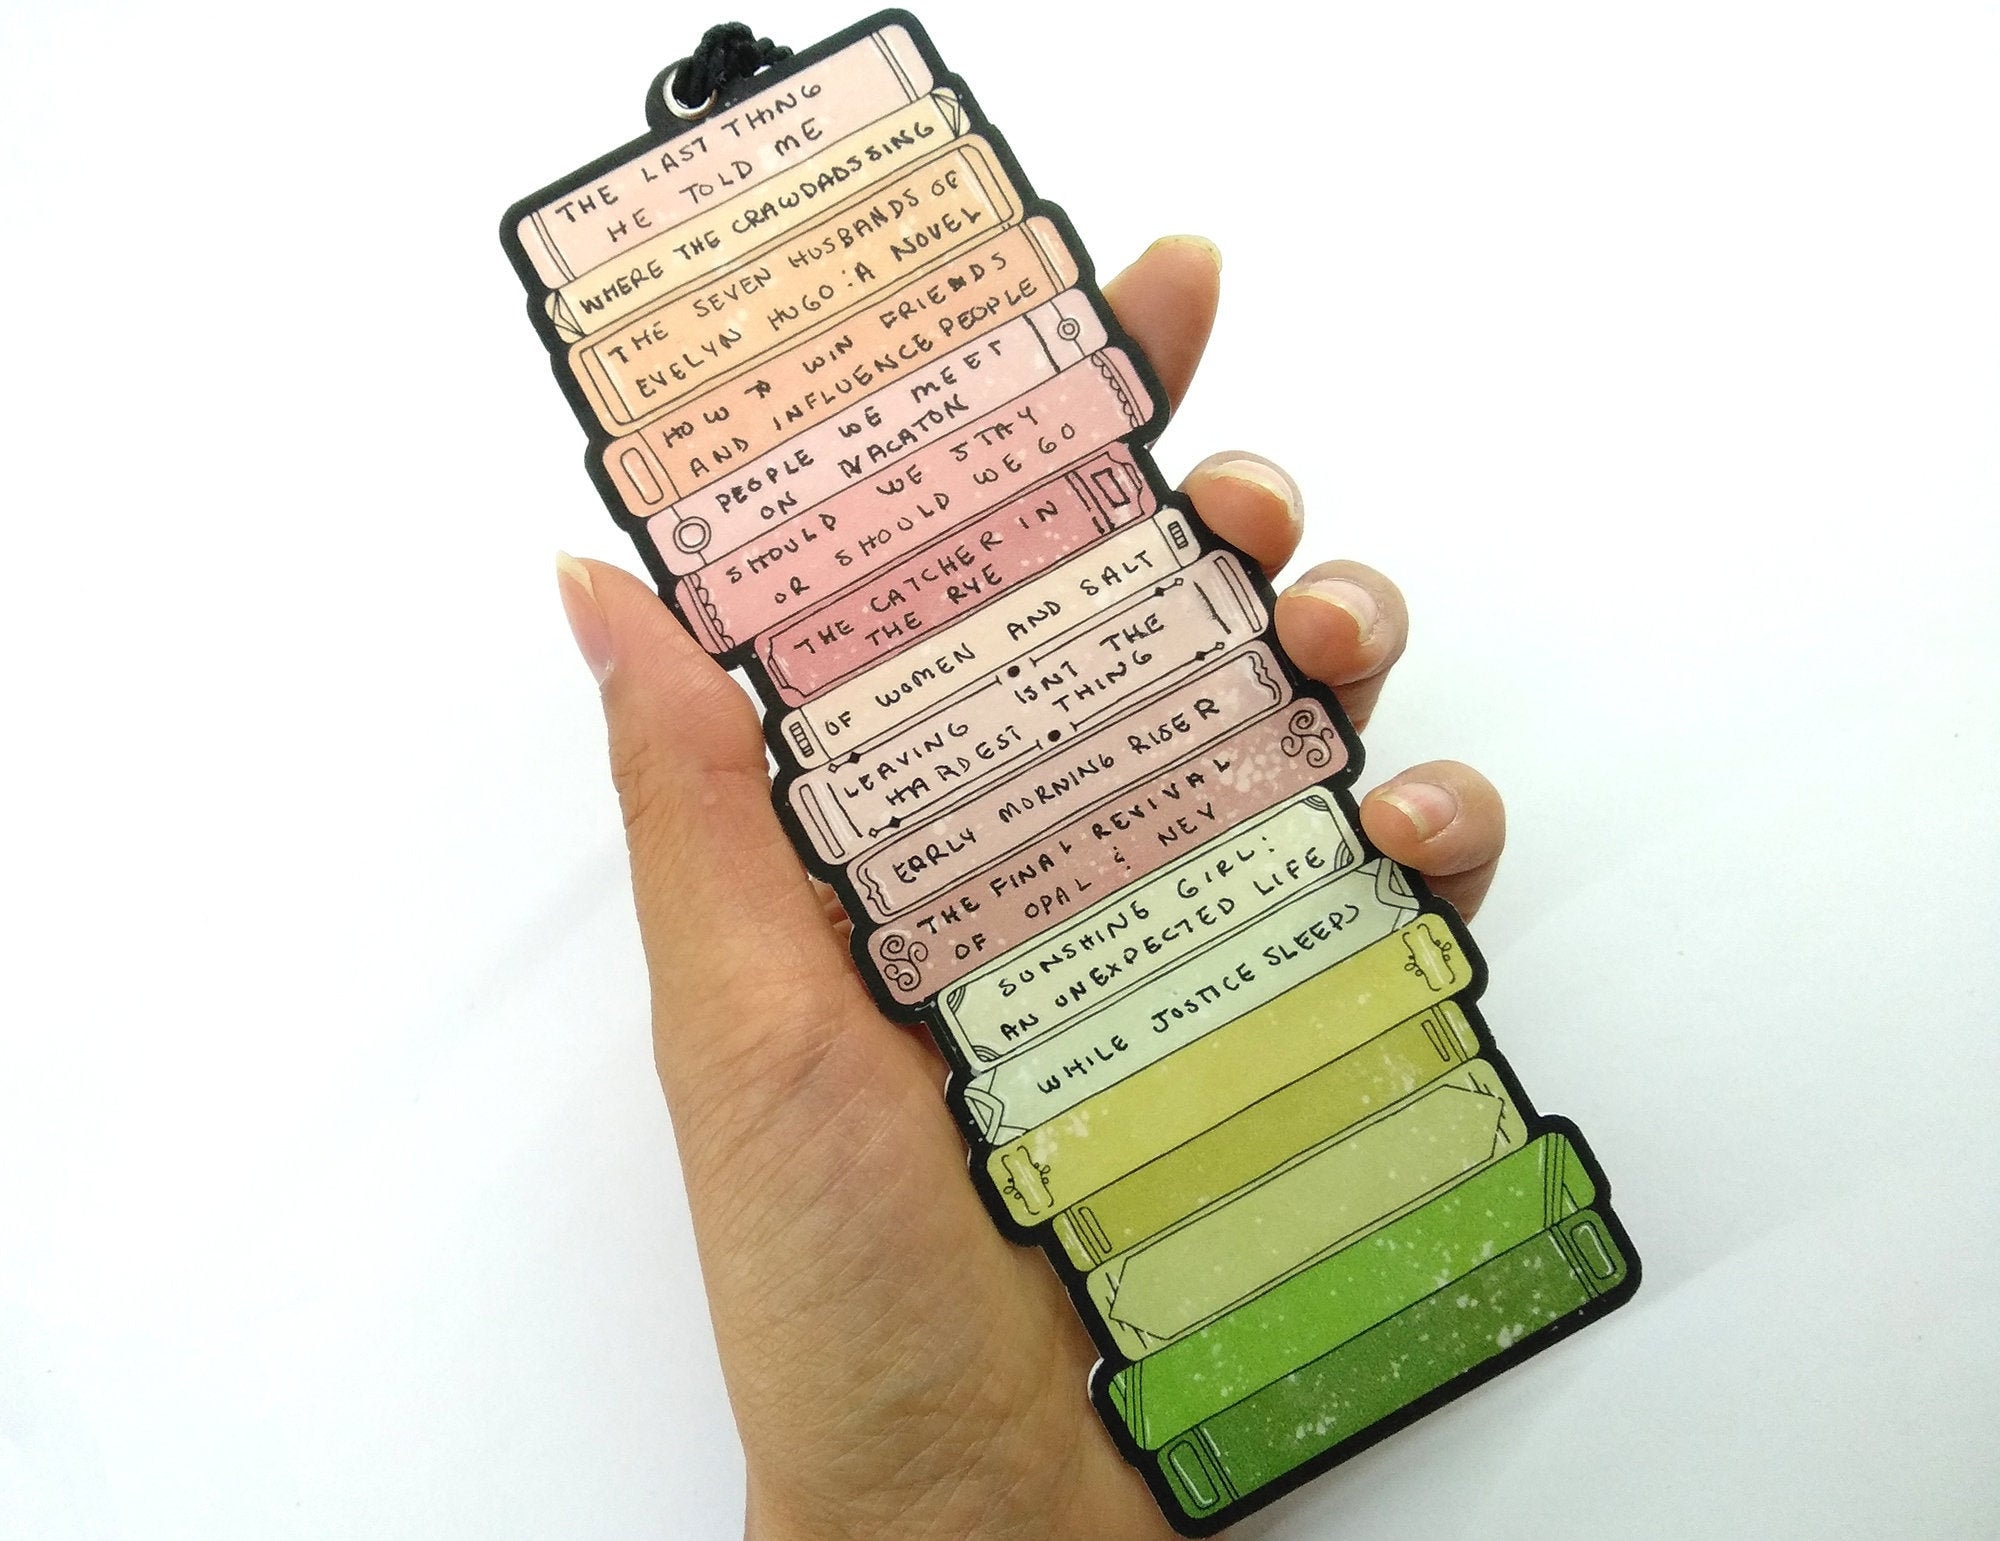 THE LAST THING
HE TOLD ME
WHERE THE CRAWDADS SING
THE SEVEN HUSBANDS OF
EVELYN HUGO : A NOVEL
HOW TO WIN FRIENDS
AND INFLUENCE PEOPLE
PEOPLE WE MEET
ON VACATON
SHOULD WE STAY
OR SHOULD WE GO
THE CATCHER IN
THE RYE
OF WOMEN AND SALT
LEAVING ISNT THE
HARDEST THING
EARLY MORNING RISER
THE FINAL REVIVAL
OF OPAL & NEV
SUNSHINE GIRL:
AN UNEXPECTED LIFE
WHILE JUSTICE SLEEPS